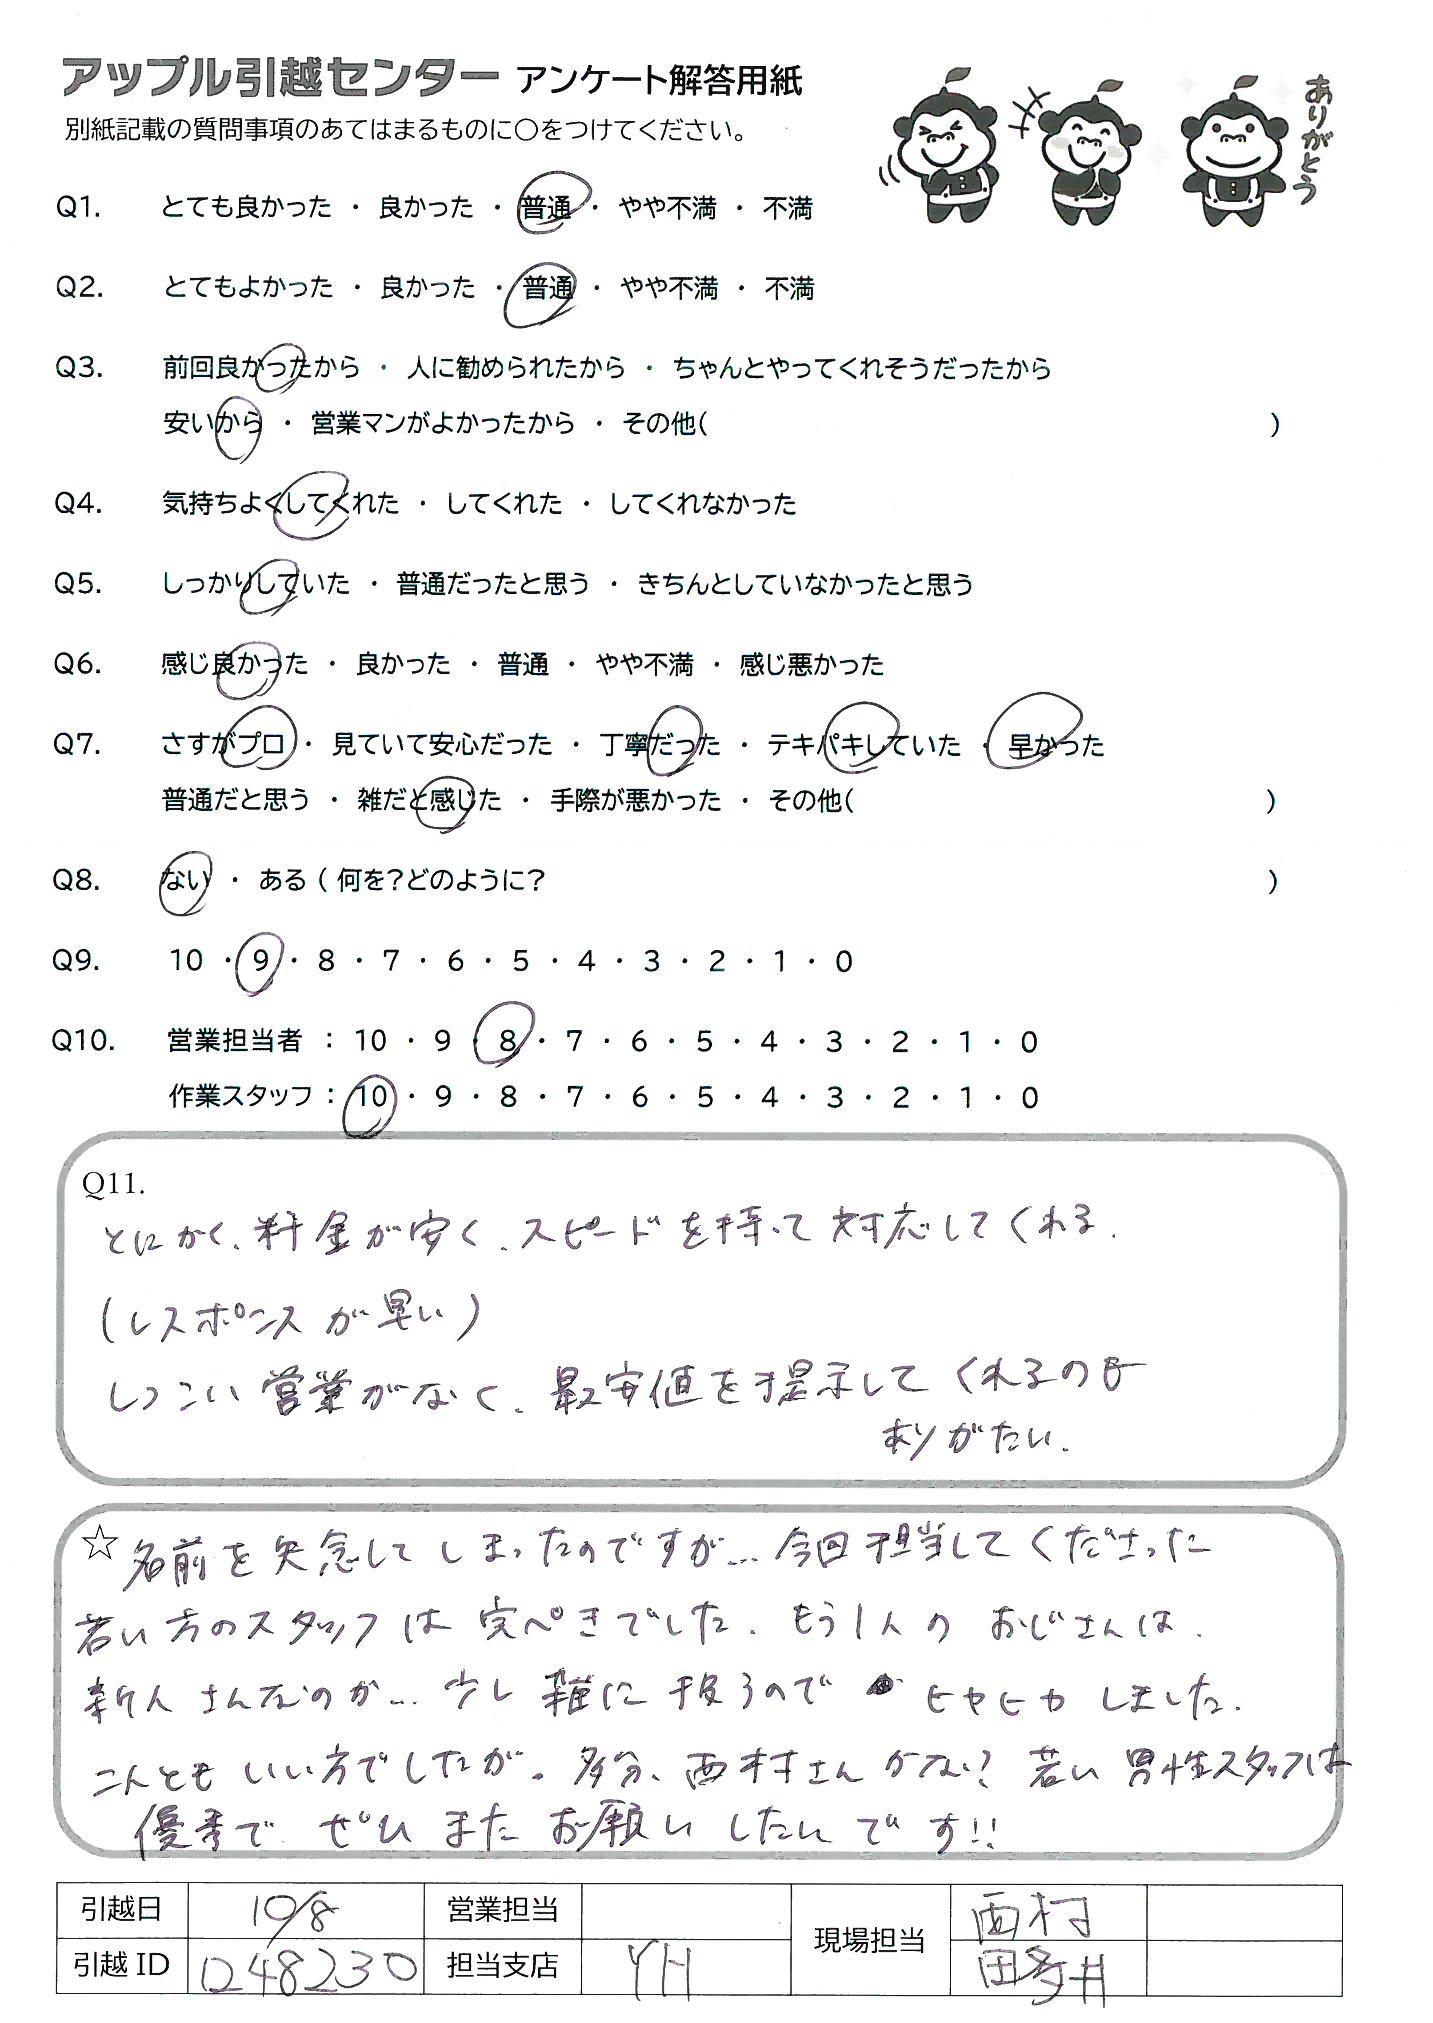 アップル引越センター アンケート解答用紙
ありがとう
別紙記載の質問事項のあてはまるものに〇をつけてください。
Q1. とても良かった ・ 良かった ・ 普通 ・ やや不満 ・ 不満
Q2. とてもよかった ・ 良かった ・ 普通 ・ やや不満 ・ 不満
Q3. 前回良かったから ・ 人に勧められたから ・ ちゃんとやってくれそうだったから
安いから ・ 営業マンがよかったから ・ その他( )
Q4. 気持ちよくしてくれた ・ してくれた ・ してくれなかった
Q5. しっかりしていた ・ 普通だったと思う ・ きちんとしていなかったと思う
Q6. 感じ良かった ・ 良かった ・ 普通 ・ やや不満 ・ 感じ悪かった
Q7. さすがプロ ・ 見ていて安心だった ・ 丁寧だった ・ テキパキしていた ・ 早かった
普通だと思う ・ 雑だと感じた ・ 手際が悪かった ・ その他( )
Q8. ない ・ ある ( 何を?どのように? )
Q9. 10 ・ 9 ・ 8 ・ 7 ・ 6 ・ 5 ・ 4 ・ 3 ・ 2 ・ 1 ・ 0
Q10. 営業担当者 : 10 ・ 9 ・ 8 ・ 7 ・ 6 ・ 5 ・ 4 ・ 3 ・ 2 ・ 1 ・ 0
作業スタッフ : 10 ・ 9 ・ 8 ・ 7 ・ 6 ・ 5 ・ 4 ・ 3 ・ 2 ・ 1 ・ 0
Q11.
とにかく、料金が安く、スピードを持って対応してくれる。
(レスポンスが早い)
しつこい営業がなく、最安値を提示してくれるのも
ありがたい。
☆名前を失念してしまったのですが…今回担当してくださった
若い方のスタッフは完ぺきでした。もう1人のおじさんは、
新人さんなのか…少し雑に扱うので ヒヤヒヤしました。
二人ともいい方でしたが。多分、西村さんかな?若い男性スタッフは
優秀で ぜひ またお願いしたいです!!
引越日 10/8 営業担当 現場担当 西村
引越ID 0248230 担当支店 YH 田多井